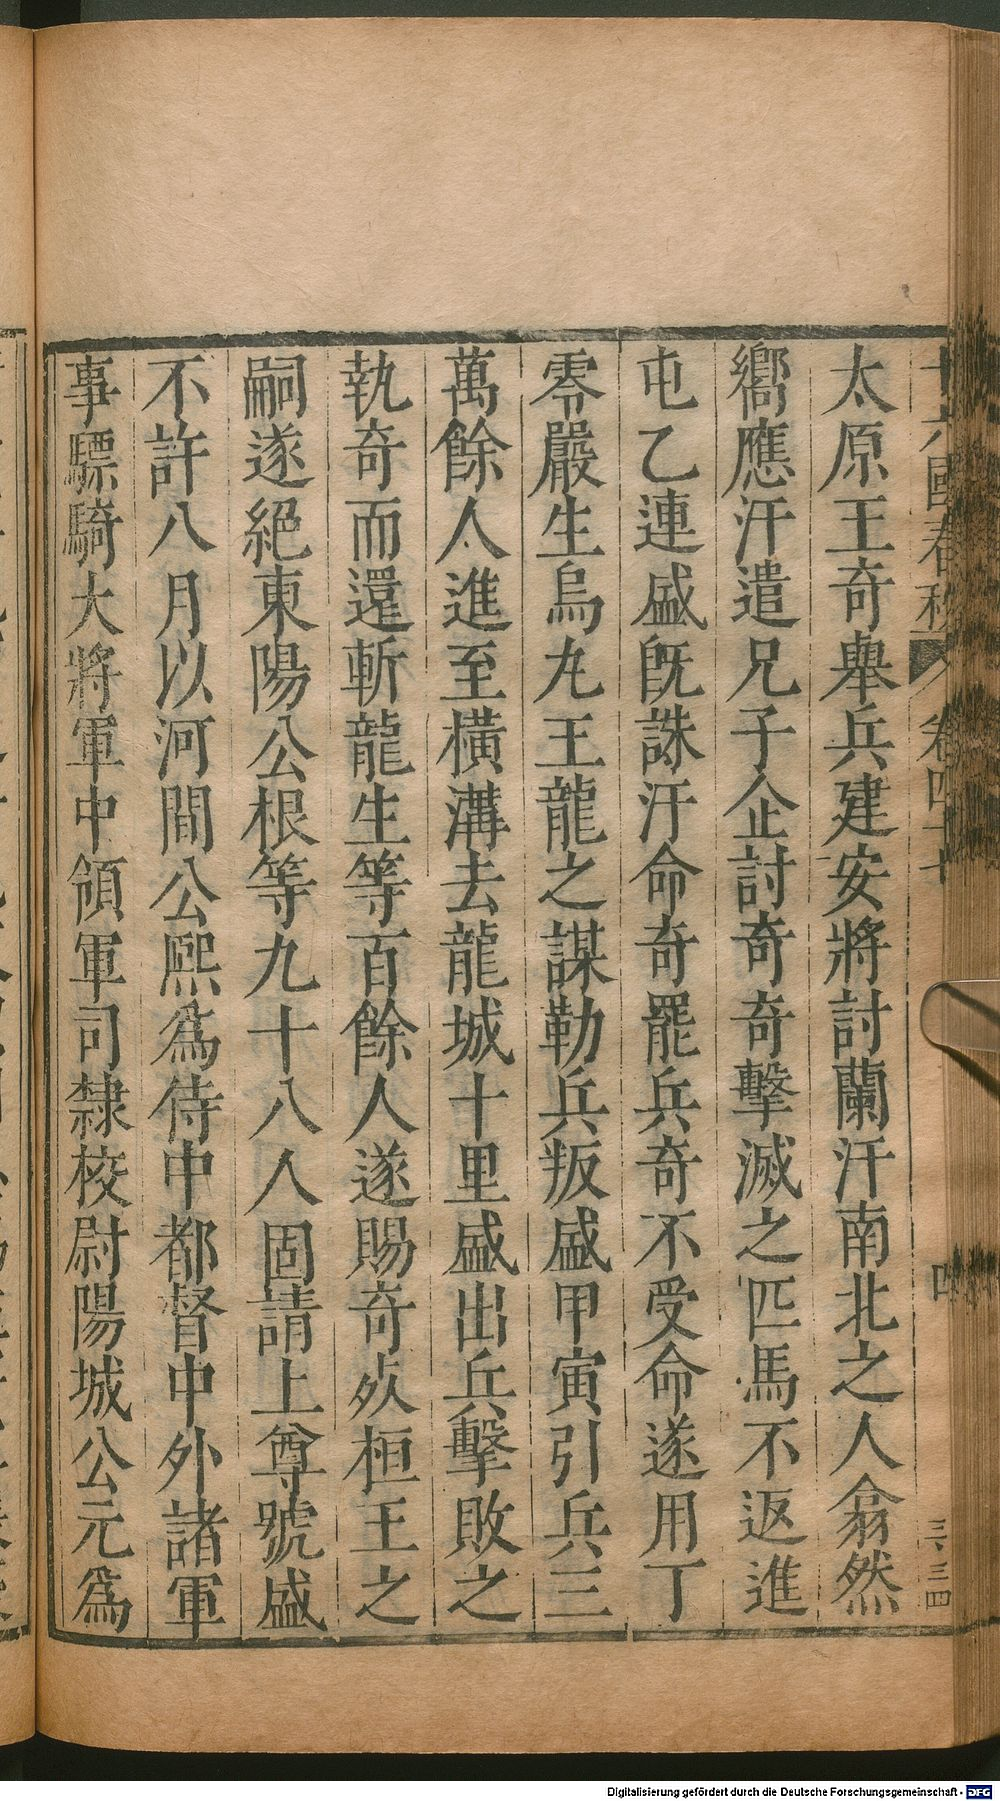 十六國春秋 卷四十七 四 三三四
太原王奇舉兵建安將討蘭汗南北之人翕然
嚮應汗遣兄子企討奇奇擊滅之匹馬不返進
屯乙連盛旣誅汗命奇罷兵奇不受命遂用丁
零嚴生烏丸王龍之謀勒兵叛盛甲寅引兵三
萬餘人進至橫溝去龍城十里盛出兵擊敗之
執奇而還斬龍生等百餘人遂賜奇死桓王之
嗣遂絕東陽公根等九十八人固請上尊號盛
不許八月以河間公熙爲侍中都督中外諸軍
事驃騎大將軍中領軍司隸校尉陽城公元爲
Digitalisierung gefördert durch die Deutsche Forschungsgemeinschaft - DFG